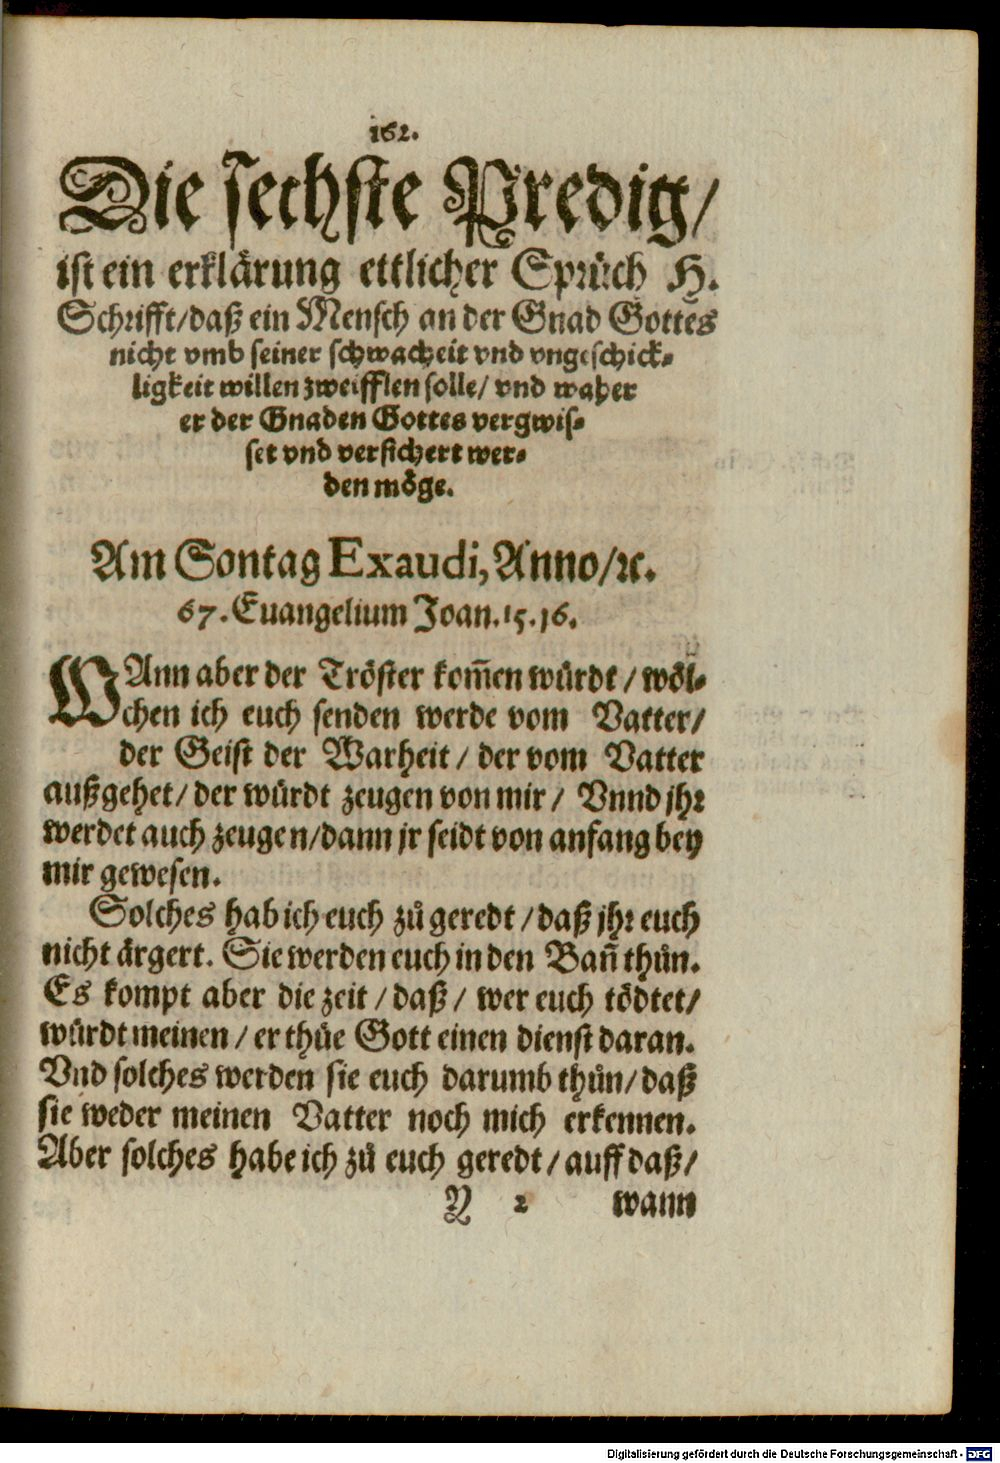 162.
Die sechste Predig/
ist ein erklärung ettlicher Sprüch H.
Schrifft/daß ein Mensch an der Gnad Gottes
nicht vmb seiner schwacheit vnd vngeschick-
ligkeit willen zweifflen solle/ vnd waher
er der Gnaden Gottes vergwis-
set vnd versichert wer-
den möge.
Am Sontag Exaudi, Anno/ꝛc.
67. Euangelium Joan. 15. 16.
WAnn aber der Tröster kom̄en würdt / wöl-
chen ich euch senden werde vom Vatter/
der Geist der Warheit / der vom Vatter
außgehet/ der würdt zeugen von mir / Vnnd jhr
werdet auch zeugen/dann jr seidt von anfang bey
mir gewesen.
Solches hab ich euch zů geredt / daß jhr euch
nicht ärgert. Sie werden euch in den Bañ thůn.
Es kompt aber die zeit / daß / wer euch tödtet/
würdt meinen / er thüe Gott einen dienst daran.
Vnd solches werden sie euch darumb thůn/ daß
sie weder meinen Vatter noch mich erkennen.
Aber solches habe ich zů euch geredt / auff daß/
Y 2 wann
Digitalisierung gefördert durch die Deutsche Forschungsgemeinschaft - DFG